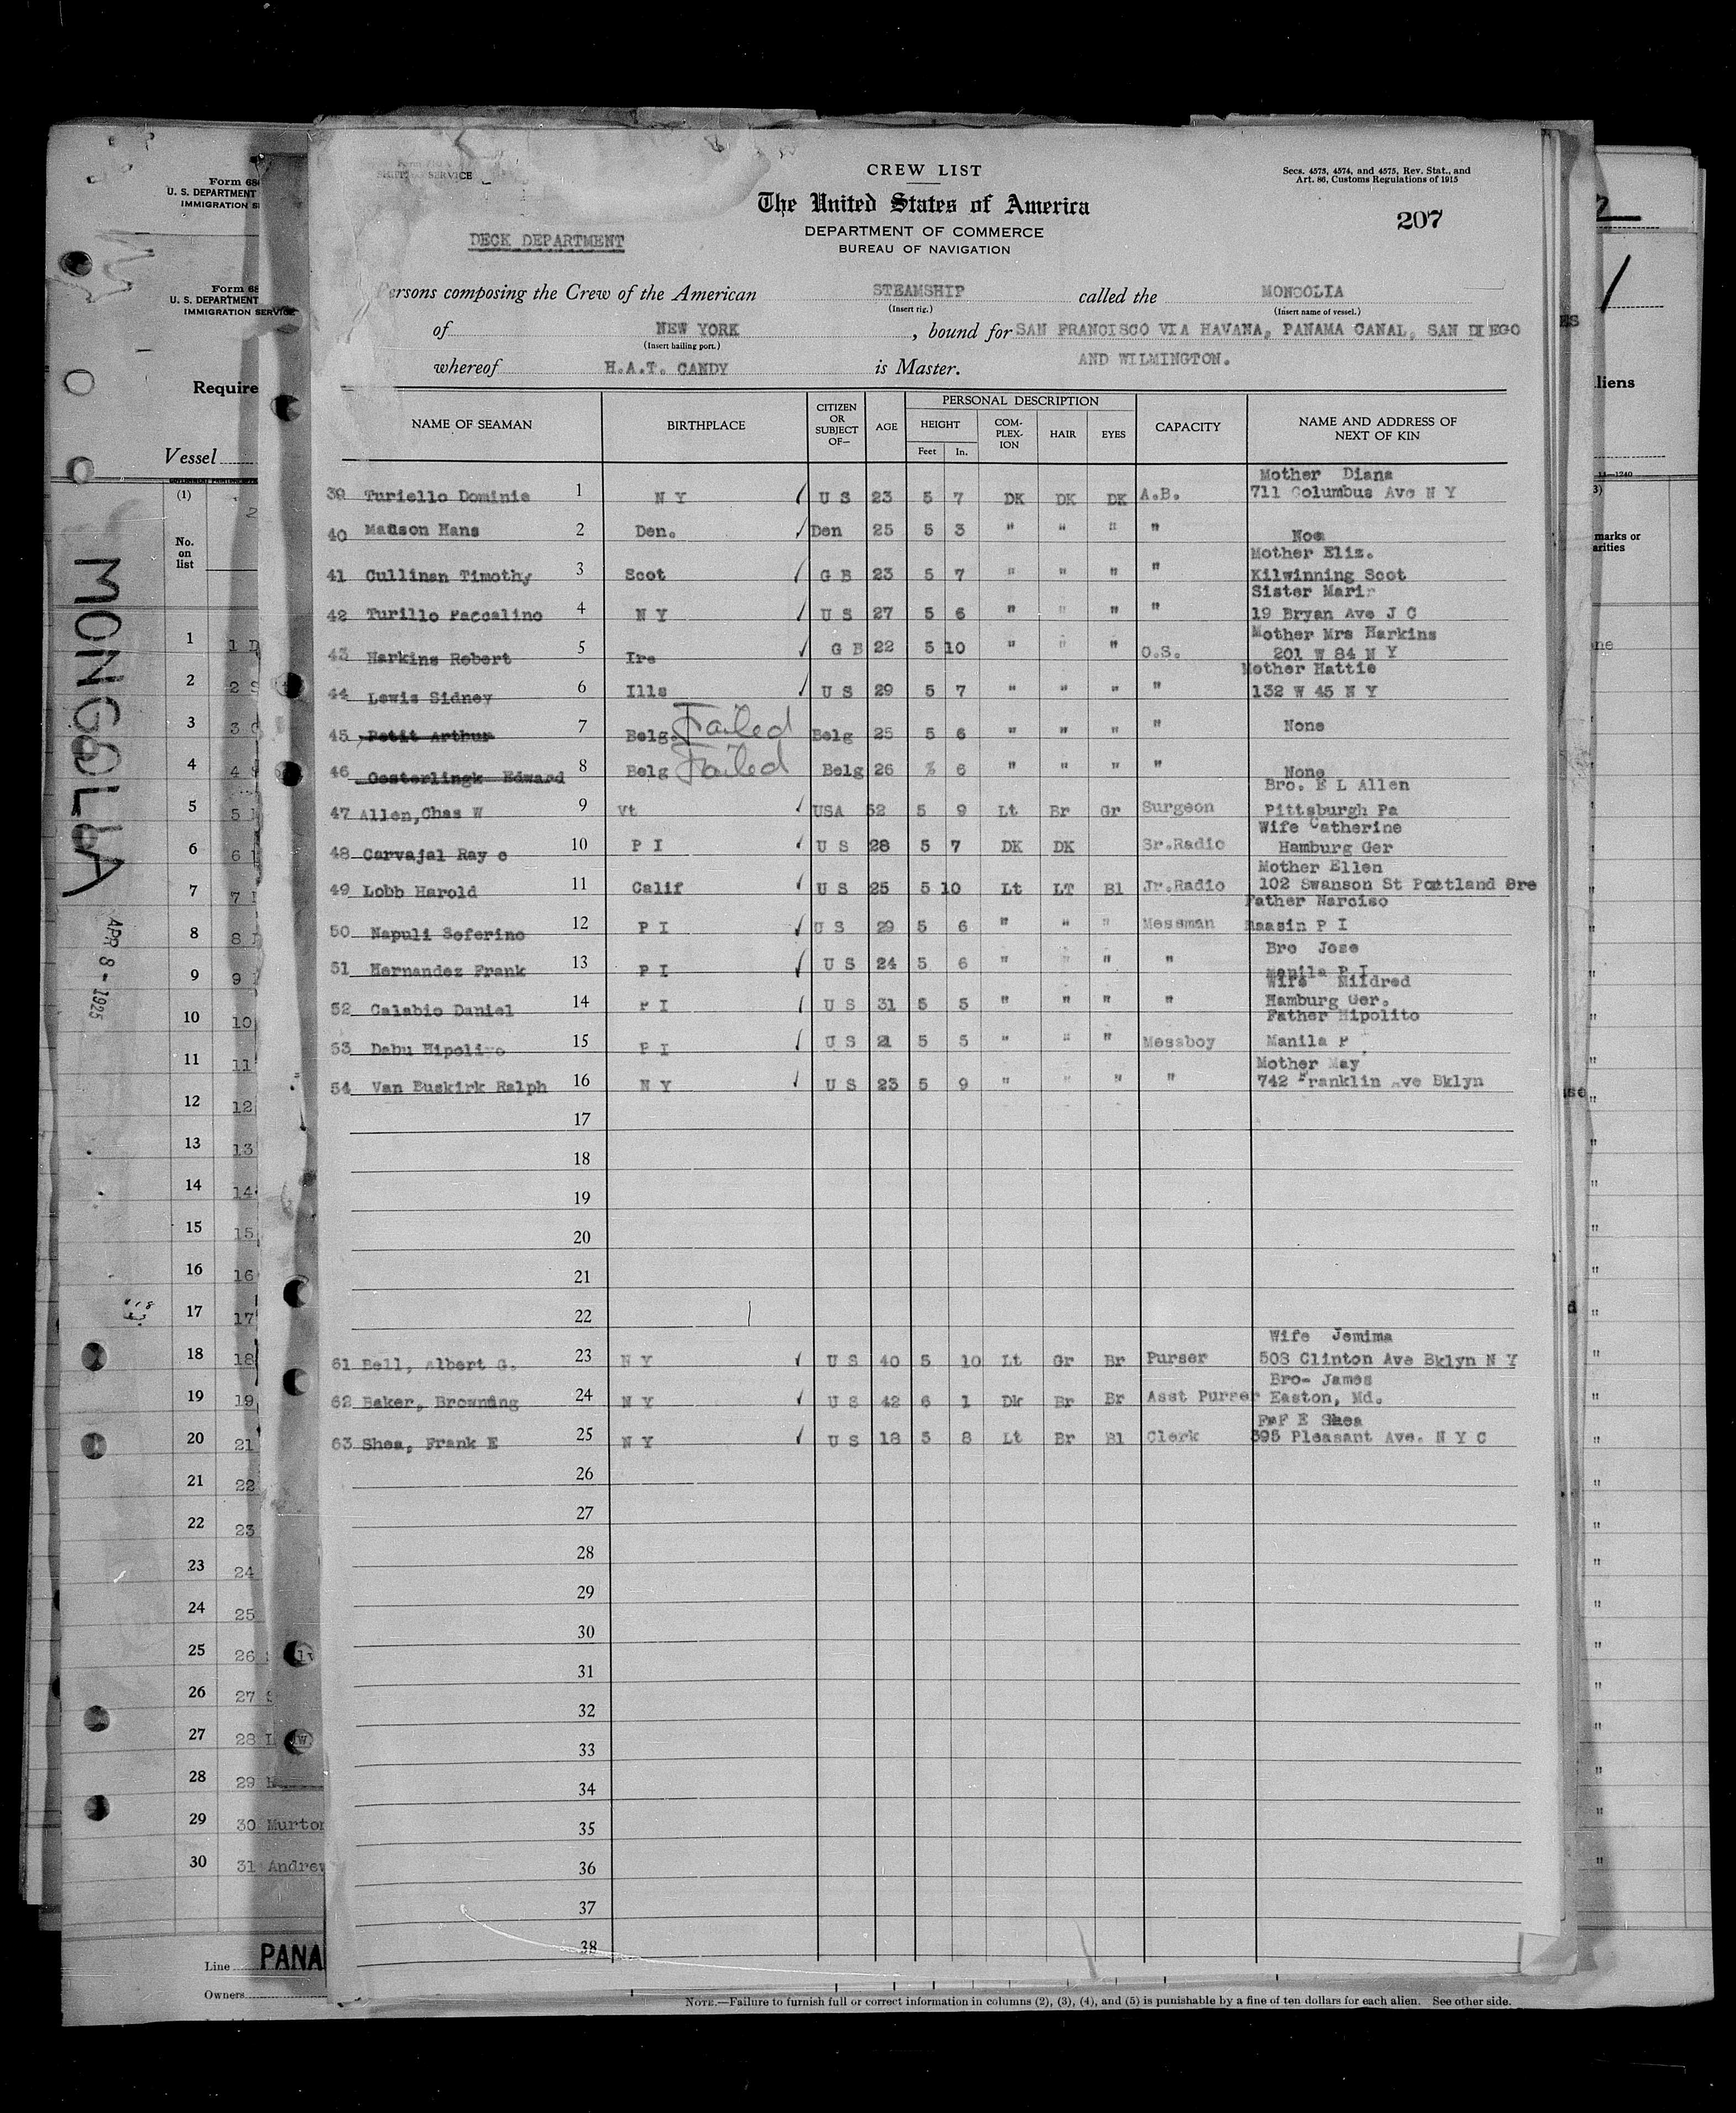 Form 68
U. S. DEPARTMENT
IMMIGRATION S
Form 68
U. S. DEPARTMENT
IMMIGRATION SERVICE
Require
Vessel
(1)
No.
on
list
MONGOLIA
APR 8 - 1925
SERVICE
CREW LIST
Secs. 4573, 4574, and 4575, Rev. Stat., and
Art. 86, Customs Regulations of 1915
The United States of America
207
DEPARTMENT OF COMMERCE
DECK DEPARTMENT
BUREAU OF NAVIGATION
Persons composing the Crew of the American STEAMSHIP called the MONGOLIA
(Insert rig.) (Insert name of vessel.)
of NEW YORK , bound for SAN FRANCISCO VIA HAVANA, PANAMA CANAL, SAN DIEGO
(Insert hailing port.)
AND WILMINGTON.
whereof H.A.T. CANDY is Master.
NAME OF SEAMAN BIRTHPLACE CITIZEN OR SUBJECT OF— AGE PERSONAL DESCRIPTION CAPACITY NAME AND ADDRESS OF NEXT OF KIN
HEIGHT COM-PLEX-ION HAIR EYES
Feet In.
Mother Diana
39 Turiello Dominie 1 N Y U S 23 5 7 DK DK DK A.B. 711 Columbus Ave N Y
40 Madson Hans 2 Den. Den 25 5 3 " " " " Noe
Mother Eliz.
41 Cullinan Timothy 3 Scot G B 23 5 7 " " " " Kilwinning Scot
Sister Marir
42 Turillo Paccalino 4 N Y U S 27 5 6 " " " " 19 Bryan Ave J C
Mother Mrs Harkins
43 Harkins Robert 5 Ire G B 22 5 10 " " " O.S. 201 W 84 N Y
Mother Hattie
44 Lewis Sidney 6 Ills U S 29 5 7 " " " " 132 W 45 N Y
45 Petit Arthur 7 Belg. Failed Belg 25 5 6 " " " " None
46 Oesterlingk Edward 8 Belg Failed Belg 26 6 " " " " None
Bro. E L Allen
47 Allen, Chas W 9 Vt USA 52 5 9 Lt Br Gr Surgeon Pittsburgh Pa
Wife Catherine
48 Carvajal Ray c 10 P I U S 28 5 7 DK DK Sr.Radio Hamburg Ger
Mother Ellen
49 Lobb Harold 11 Calif U S 25 5 10 Lt LT Bl Jr.Radio 102 Swanson St Portland Ore
Father Narciso
50 Napuli Seferino 12 P I U S 29 5 6 " " " Messman Maasin P I
Bro Jose
51 Hernandez Frank 13 P I U S 24 5 6 " " " " Manila P I
Wife Mildred
52 Calabio Daniel 14 P I U S 31 5 5 " " " " Hamburg Ger.
Father Hipolito
53 Dabu Hipoliyo 15 P I U S 21 5 5 " " " Messboy Manila P
Mother May
54 Van Buskirk Ralph 16 N Y U S 23 5 9 " " " " 742 Franklin Ave Bklyn
17
18
19
20
21
22
Wife Jemima
61 Bell, Albert G. 23 N Y U S 40 5 10 Lt Gr Br Purser 508 Clinton Ave Bklyn N Y
Bro- James
62 Baker, Browning 24 N Y U S 42 6 1 Dk Br Br Asst Purser Easton, Md.
F E Shea
63 Shea, Frank E 25 N Y U S 18 5 8 Lt Br Bl Clerk 395 Pleasant Ave. N Y C
26
27
28
29
30
31
32
33
34
35
36
37
38
1
2
3
4
5
6
7
8
9
10 10
11 11
12 12
13 13
14 14
15 15
16 16
17 17
18 18
19 19
20 21
21 22
22 23
23 24
24 25
25 26
26 27
27 28
28 29
29 30 Murton
30 31 Andrew
Line PANA
Owners
NOTE.—Failure to furnish full or correct information in columns (2), (3), (4), and (5) is punishable by a fine of ten dollars for each alien. See other side.
liens
14—1240
marks or
arities